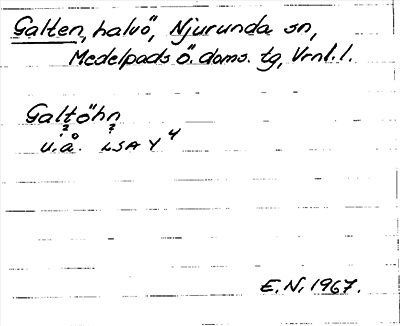 Galten, halvö, Njurunda sn,
Medelpads ö. doms. tg, Vrnl. l.
Galtöhn
? ?
u.å. LSA Y 4
E.N. 1967.